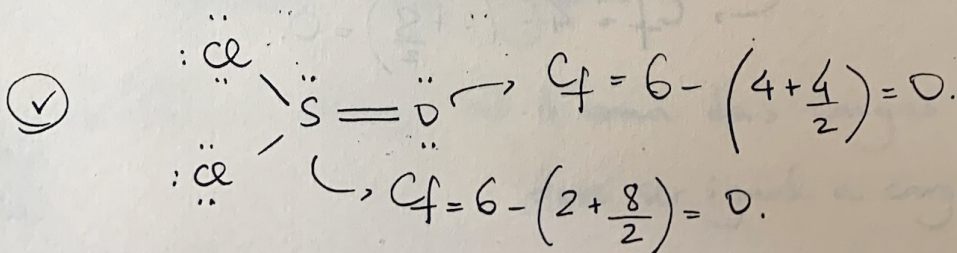 :Cl
S = O → Cf = 6 - (4 + 4/2) = 0.
:Cl
↳ Cf = 6 - (2 + 8/2) = 0.